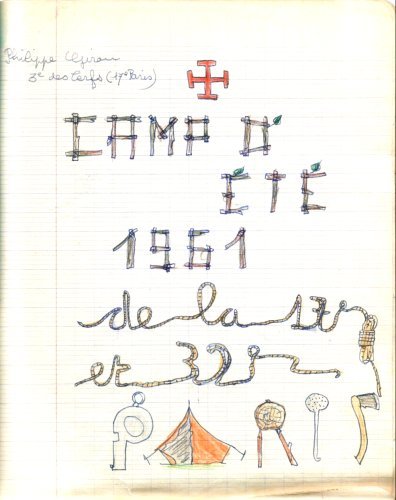 Philippe
3e des Cerfs (17e Paris)
CAMP D'
ÉTÉ
1961
de la 17e
et 32e
PARIS